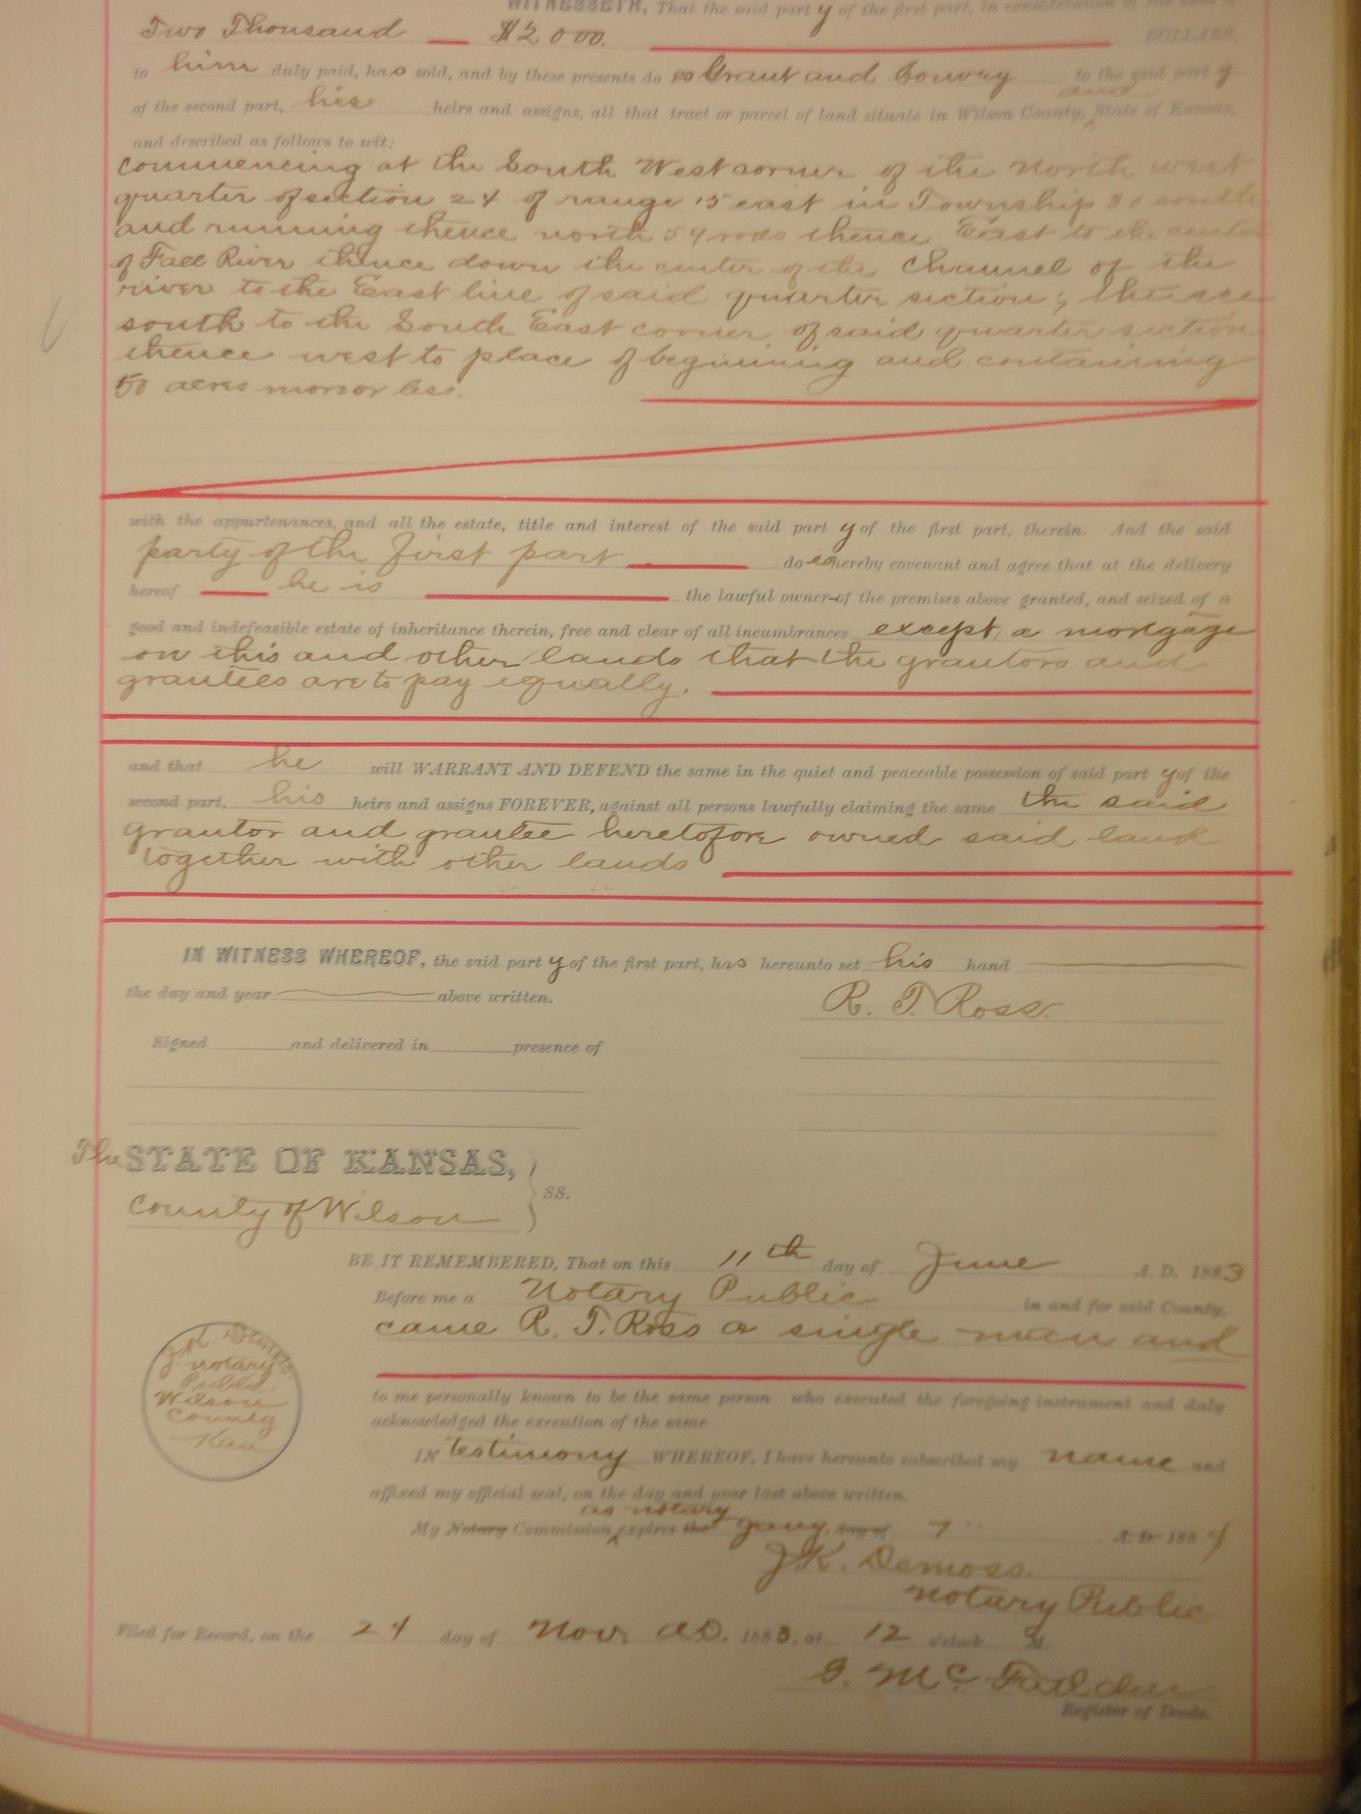 WITNESSETH, That the said party of the first part, in consideration of the sum of
Two Thousand $2000. DOLLARS,
to him duly paid, has sold, and by these presents does Grant and Convey to the said party
of the second part, his heirs and assigns, all that tract or parcel of land situate in Wilson County, and State of Kansas,
and described as follows to wit:
commencing at the South West corner of the North west
quarter of section 24 of range 15 east in Township 30 south
and running thence north 59 rods thence East to the center
of Fall River thence down the center of the Channel of the
river to the East line of said quarter section; thence
south to the South East corner of said quarter section
thence west to place of beginning and containing
50 acres more or less.
with the appurtenances, and all the estate, title and interest of the said party of the first part, therein. And the said
party of the first part does hereby covenant and agree that at the delivery
hereof he is the lawful owner of the premises above granted, and seized of a
good and indefeasible estate of inheritance therein, free and clear of all incumbrances except a mortgage
on this and other lands that the grantors and
grantees are to pay equally.
and that he will WARRANT AND DEFEND the same in the quiet and peaceable possession of said party of the
second part, his heirs and assigns FOREVER, against all persons lawfully claiming the same the said
grantor and grantee heretofore owned said land
together with other lands
IN WITNESS WHEREOF, the said party of the first part, has hereunto set his hand
the day and year above written.
R. T. Ross.
Signed and delivered in presence of
The STATE OF KANSAS,
County of Wilson } SS.
BE IT REMEMBERED, That on this 11th day of June A. D. 1883
Before me a Notary Public in and for said County,
came R. T. Ross a single man and
J. K. Demoss
Notary
Public
Wilson
County
Kan
to me personally known to be the same person who executed the foregoing instrument and duly
acknowledged the execution of the same
IN testimony WHEREOF, I have hereunto subscribed my name and
affixed my official seal, on the day and year last above written.
as notary
My Notary Commission expires the Jany. day of 7" A. D. 1884
J. K. Demoss.
Notary Public
Filed for Record, on the 24 day of Nov A.D. 1883, at 12 o'clock M.
G. McFadden
Register of Deeds.